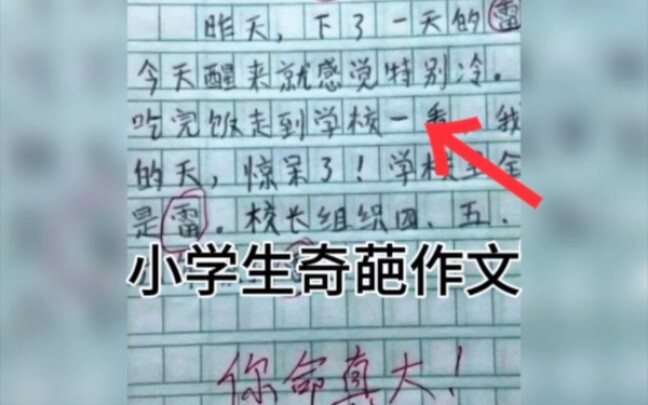 昨天，下了一天的雷
今天醒来就感觉特别冷。
吃完饭走到学校一看，我
的天，惊呆了！学校里全
是雷。校长组织四、五、
小学生奇葩作文
你命真大！